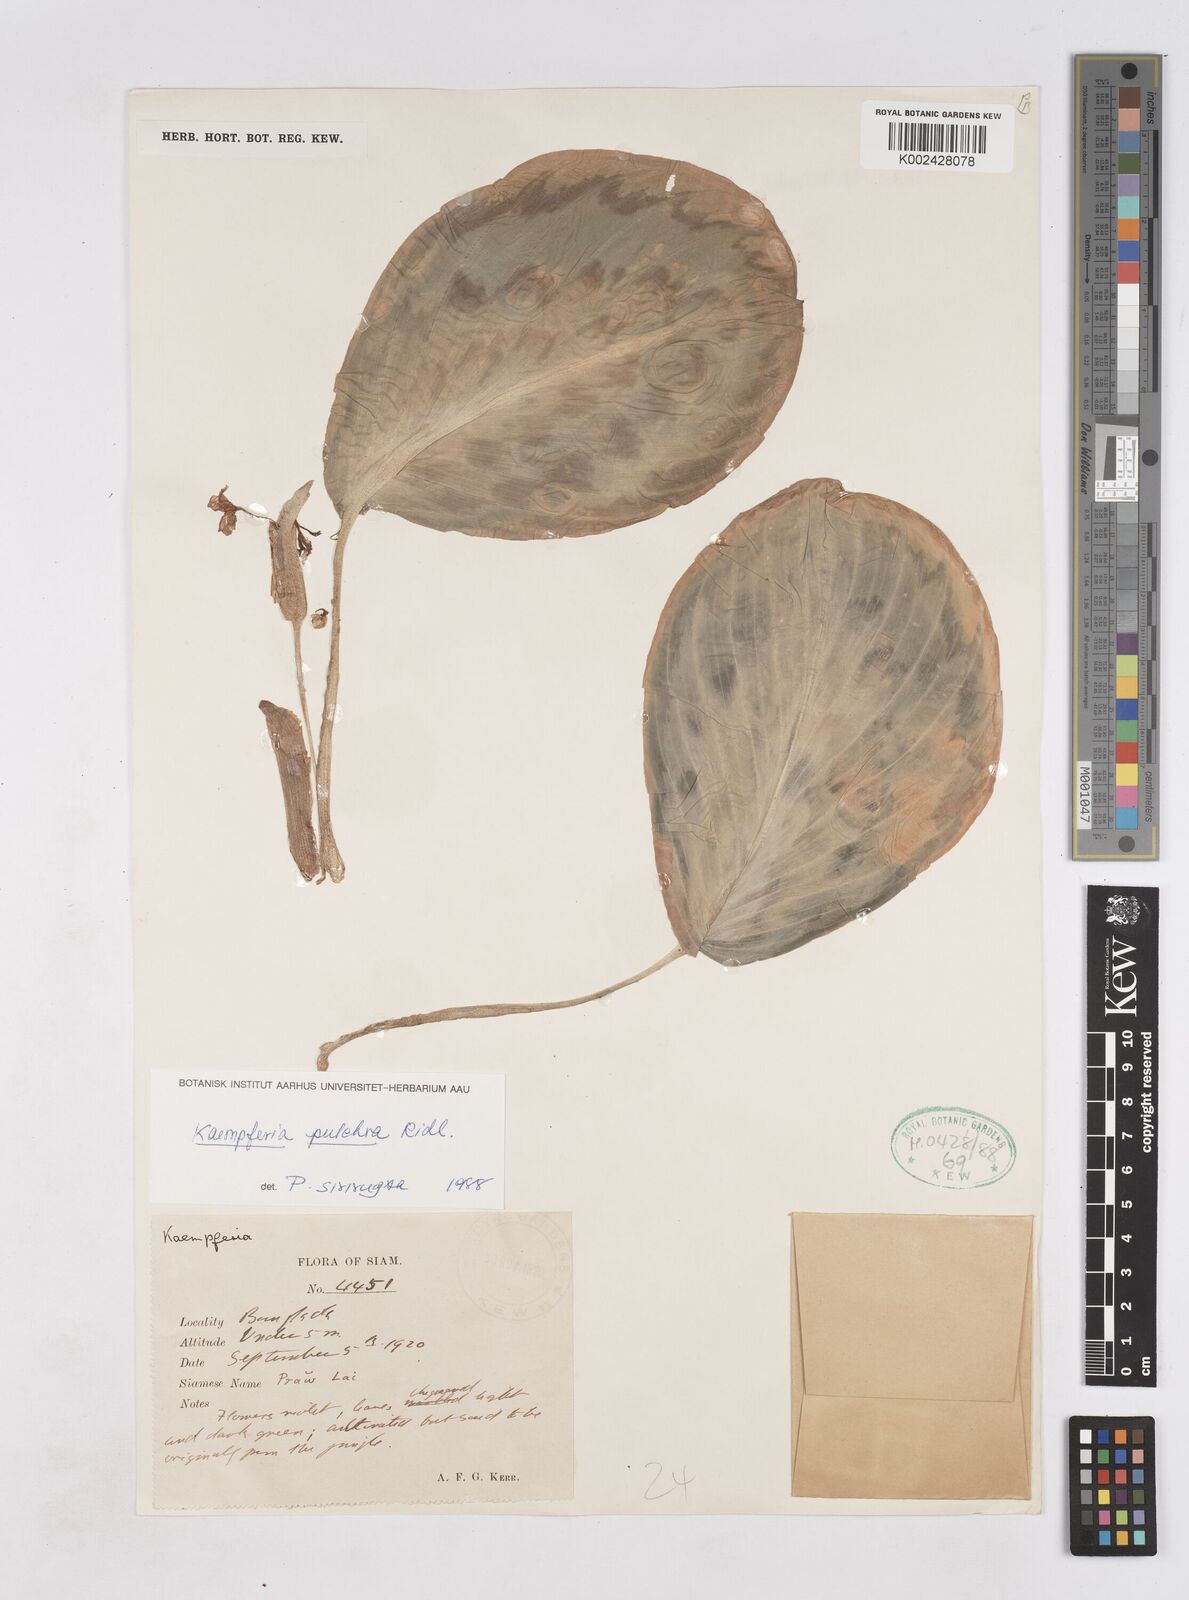 HERB. HORT. BOT. REG. KEW.
ROYAL BOTANIC GARDENS KEW
K002428078
BOTANISK INSTITUT AARHUS UNIVERSITET–HERBARIUM AAU
Kaempferia pulchra Ridl.
det. P. Sirirugsa 1988
Kaempferia
FLORA OF SIAM.
No. 4451
Locality
Altitude Under 5 m.
Date September 5 1920
Siamese Name Prăw Lai
Notes Flowers violet, leaves light
and dark green; cultivated but said to be
originally from the jungle.
A. F. G. KERR.
24
ROYAL BOTANIC GARDENS
H.0428/88
69
KEW
inches
Density
Don Williams
M001047
centimeters
Kew
Royal Botanic Gardens
All rights reserved
0 1 2 3 4 5 6 7 8 9 10
cm